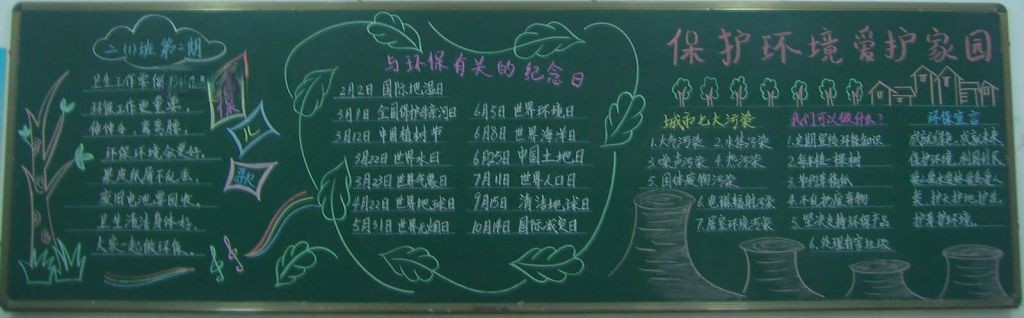 二(1)班 第二期
环保儿歌
卫生工作要做
环保工作更重要。
伸伸手，弯弯腰，
环保环境会更好。
果皮纸屑不乱丢，
废旧电池要回收。
卫生清洁身体好，
大家一起做环保。
与环保有关的纪念日
2月2日 国际湿地日
3月9日 全国保护母亲河日
3月12日 中国植树节
3月22日 世界水日
3月23日 世界气象日
4月22日 世界地球日
5月31日 世界无烟日
6月5日 世界环境日
6月8日 世界海洋日
6月25日 中国土地日
7月11日 世界人口日
9月15日 清洁地球日
10月14日 国际减灾日
保护环境爱护家园
城市七大污染
1.大气污染 2.水体污染
3.噪声污染 4.热污染
5.固体废物污染
6.电磁辐射污染
7.居室环境污染
我们可以做什么？
1.定期宣传环保知识
2.每年植一棵树
3.节约草稿纸
4.不乱扔废弃物
5.坚决支持环保产品
6.处理有害垃圾
环保宣言
保护环境，利国利民
护卫护地护花
护有护环境。